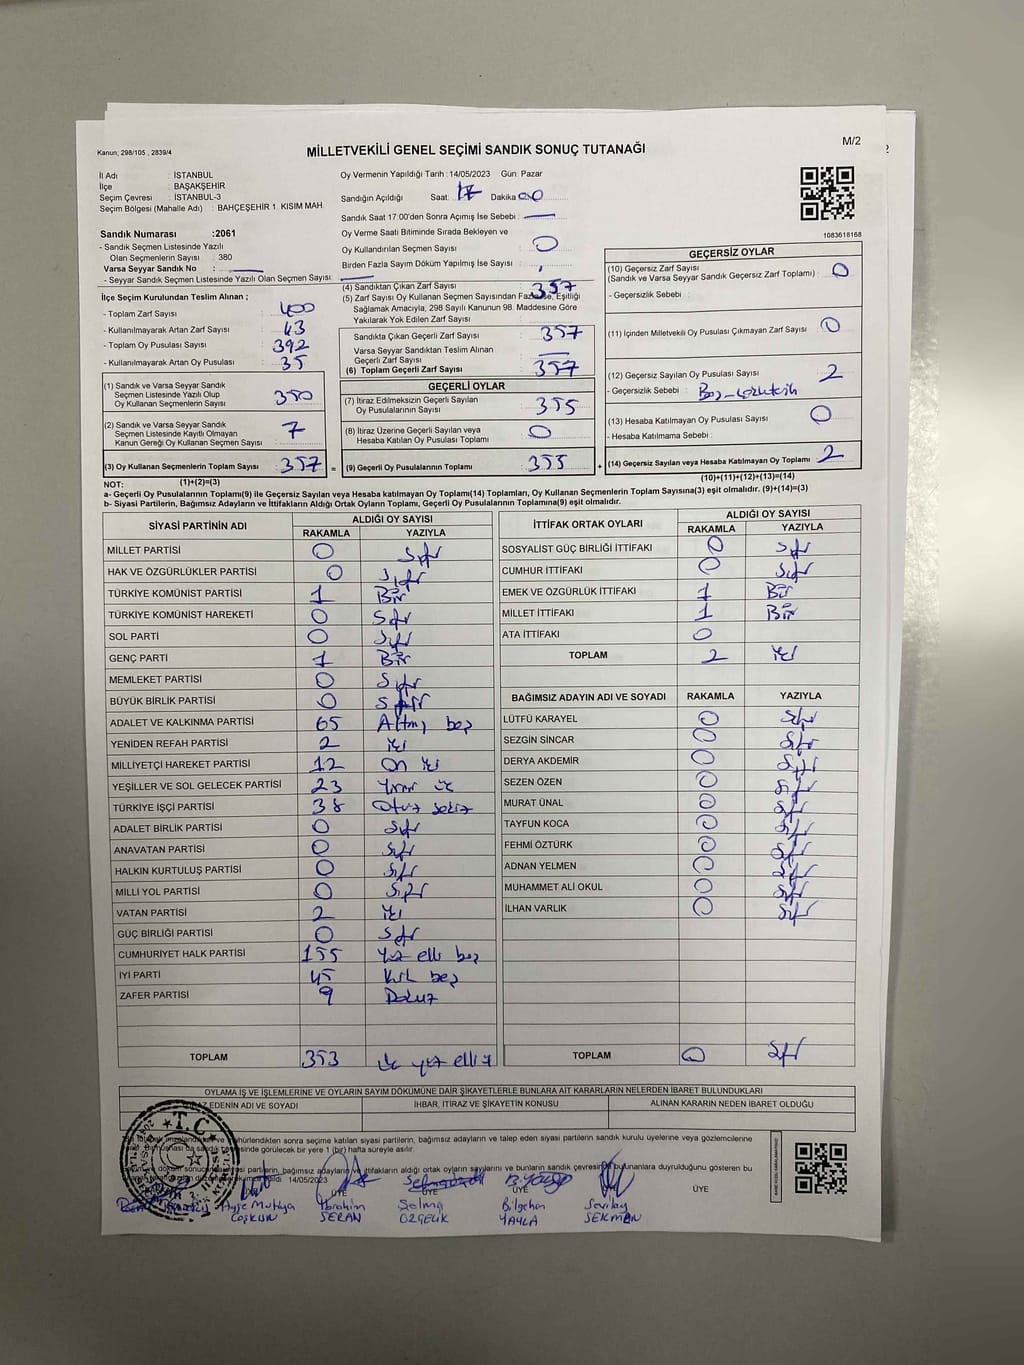 M/2
2
Kanun; 298/105 , 2839/4
MİLLETVEKİLİ GENEL SEÇİMİ SANDIK SONUÇ TUTANAĞI
İl Adı : İSTANBUL
İlçe : BAŞAKŞEHİR
Seçim Çevresi : İSTANBUL-3
Seçim Bölgesi (Mahalle Adı) : BAHÇEŞEHİR 1. KISIM MAH.
Sandık Numarası :2061
- Sandık Seçmen Listesinde Yazılı
Olan Seçmenlerin Sayısı : 380
Varsa Seyyar Sandık No :
- Seyyar Sandık Seçmen Listesinde Yazılı Olan Seçmen Sayısı:
İlçe Seçim Kurulundan Teslim Alınan ;
- Toplam Zarf Sayısı 400
- Kullanılmayarak Artan Zarf Sayısı 43
- Toplam Oy Pusulası Sayısı 392
- Kullanılmayarak Artan Oy Pusulası 35
(1) Sandık ve Varsa Seyyar Sandık
Seçmen Listesinde Yazılı Olup
Oy Kullanan Seçmenlerin Sayısı 350
(2) Sandık ve Varsa Seyyar Sandık
Seçmen Listesinde Kayıtlı Olmayan
Kanun Gereği Oy Kullanan Seçmen Sayısı 7
(3) Oy Kullanan Seçmenlerin Toplam Sayısı 357 =
Oy Vermenin Yapıldığı Tarih : 14/05/2023 Gün: Pazar
Sandığın Açıldığı Saat: 17 Dakika 00
Sandık Saat 17.00'den Sonra Açımış İse Sebebi :
Oy Verme Saati Bitiminde Sırada Bekleyen ve
Oy Kullandırılan Seçmen Sayısı 0
Birden Fazla Sayım Döküm Yapılmış İse Sayısı :
(4) Sandıktan Çıkan Zarf Sayısı 357
(5) Zarf Sayısı Oy Kullanan Seçmen Sayısından Fazla İse, Eşitliği
Sağlamak Amacıyla, 298 Sayılı Kanunun 98. Maddesine Göre
Yakılarak Yok Edilen Zarf Sayısı :
Sandıkta Çıkan Geçerli Zarf Sayısı 357
Varsa Seyyar Sandıktan Teslim Alınan
Geçerli Zarf Sayısı
(6) Toplam Geçerli Zarf Sayısı 357
GEÇERLİ OYLAR
(7) İtiraz Edilmeksizin Geçerli Sayılan
Oy Pusulalarının Sayısı 355
(8) İtiraz Üzerine Geçerli Sayılan veya
Hesaba Katılan Oy Pusulası Toplamı 0
(9) Geçerli Oy Pusulalarının Toplamı 355 +
1083618168
GEÇERSİZ OYLAR
(10) Geçersiz Zarf Sayısı
(Sandık ve Varsa Seyyar Sandık Geçersiz Zarf Toplamı) : 0
- Geçersizlik Sebebi :
(11) İçinden Milletvekili Oy Pusulası Çıkmayan Zarf Sayısı 0
(12) Geçersiz Sayılan Oy Pusulası Sayısı 2
- Geçersizlik Sebebi :
(13) Hesaba Katılmayan Oy Pusulası Sayısı 0
- Hesaba Katılmama Sebebi :
(14) Geçersiz Sayılan veya Hesaba Katılmayan Oy Toplamı 2
(10)+(11)+(12)+(13)=(14)
NOT: (1)+(2)=(3)
a- Geçerli Oy Pusulalarının Toplamı(9) ile Geçersiz Sayılan veya Hesaba katılmayan Oy Toplamı(14) Toplamları, Oy Kullanan Seçmenlerin Toplam Sayısına(3) eşit olmalıdır. (9)+(14)=(3)
b- Siyasi Partilerin, Bağımsız Adayların ve İttifakların Aldığı Ortak Oyların Toplamı, Geçerli Oy Pusulalarının Toplamına(9) eşit olmalıdır.
SİYASİ PARTİNİN ADI ALDIĞI OY SAYISI
RAKAMLA YAZIYLA
MİLLET PARTİSİ 0 Sıfır
HAK VE ÖZGÜRLÜKLER PARTİSİ 0 Sıfır
TÜRKİYE KOMÜNİST PARTİSİ 1 Bir
TÜRKİYE KOMÜNİST HAREKETİ 0 Sıfır
SOL PARTİ 0 Sıfır
GENÇ PARTİ 1 Bir
MEMLEKET PARTİSİ 0 Sıfır
BÜYÜK BİRLİK PARTİSİ 0 Sıfır
ADALET VE KALKINMA PARTİSİ 65 Altmış beş
YENİDEN REFAH PARTİSİ 2 iki
MİLLİYETÇİ HAREKET PARTİSİ 12 On iki
YEŞİLLER VE SOL GELECEK PARTİSİ 23 Yirmi üç
TÜRKİYE İŞÇİ PARTİSİ 38 Otuz sekiz
ADALET BİRLİK PARTİSİ 0 Sıfır
ANAVATAN PARTİSİ 0 Sıfır
HALKIN KURTULUŞ PARTİSİ 0 Sıfır
MİLLİ YOL PARTİSİ 0 Sıfır
VATAN PARTİSİ 2 iki
GÜÇ BİRLİĞİ PARTİSİ 0 Sıfır
CUMHURİYET HALK PARTİSİ 155 Yüz elli beş
İYİ PARTİ 45 Kırk beş
ZAFER PARTİSİ 9 Dokuz
TOPLAM 353 üç yüz elli
İTTİFAK ORTAK OYLARI ALDIĞI OY SAYISI
RAKAMLA YAZIYLA
SOSYALİST GÜÇ BİRLİĞİ İTTİFAKI 0 Sıfır
CUMHUR İTTİFAKI 0 Sıfır
EMEK VE ÖZGÜRLÜK İTTİFAKI 1 Bir
MİLLET İTTİFAKI 1 Bir
ATA İTTİFAKI 0
TOPLAM 2 iki
BAĞIMSIZ ADAYIN ADI VE SOYADI RAKAMLA YAZIYLA
LÜTFÜ KARAYEL 0 Sıfır
SEZGİN SİNCAR 0 Sıfır
DERYA AKDEMİR 0 Sıfır
SEZEN ÖZEN 0 Sıfır
MURAT ÜNAL 0 Sıfır
TAYFUN KOCA 0 Sıfır
FEHMİ ÖZTÜRK 0 Sıfır
ADNAN YELMEN 0 Sıfır
MUHAMMET ALİ OKUL 0 Sıfır
İLHAN VARLIK 0 Sıfır
TOPLAM 0 Sıfır
OYLAMA İŞ VE İŞLEMLERİNE VE OYLARIN SAYIM DÖKÜMÜNE DAİR ŞİKAYETLERLE BUNLARA AİT KARARLARIN NELERDEN İBARET BULUNDUKLARI
EDENİN ADI VE SOYADI İHBAR, İTİRAZ VE ŞİKAYETİN KONUSU ALINAN KARARIN NEDEN İBARET OLDUĞU
mühürlendikten sonra seçime katılan siyasi partilerin, bağımsız adayların ve talep eden siyasi partilerin sandık kurulu üyelerine veya gözlemcilerine
görülecek bir yere 1 (bir) hafta süreyle asılır.
partilerin, bağımsız adayların ve ittifakların aldığı ortak oyların sayılarını ve bunların sandık çevresinde bulunanlara duyrulduğunu gösteren bu
14/05/2023
T.C
ÜYE ÜYE ÜYE ÜYE
Ayşe Mutluya İbrahim Selma Bilgehan Sevilay
COŞKUN SERAN ÖZÇELİK YAYLA SEKMAN